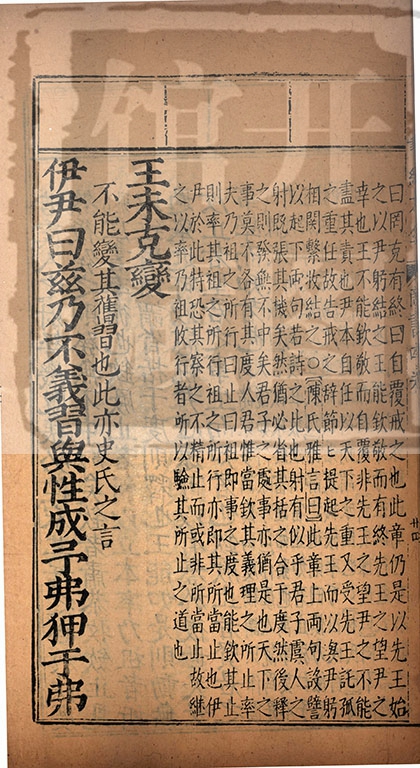 曰罔克有終曰自覆戒之也此章仍是以先王始
之以尹躬結之王能欽敬而有終先王之望尹之
幸也王不能欽敬而自覆非先王之望尹之不能
盡其責也尹本自任以天下之重又受先王託孤
之重任故告戒之辭節〻提起先王而以與尹躬
相關繫收結之○陳氏雅言曰此章上兩句設譬
以起下兩句若詩之比也射有似乎君子虞人之
射既張其機矣然猶必省其括之合于度然後釋
之則發無不中矣君子之處事亦猶是也天下之
事莫不各有其度人君惟當欽其義理之所止率
夫乃祖之所行曰止曰祖即事之度也能欽其止
則率其祖之所行祖之所行亦即其所當止也伊
尹於此特恐其察之不精止而或非所當止故繼
之以率乃祖攸行者所以驗其所止之道也
王未克變
不能變其舊習也此亦史氏之言
伊尹曰兹乃不義習與性成予弗狎于弗